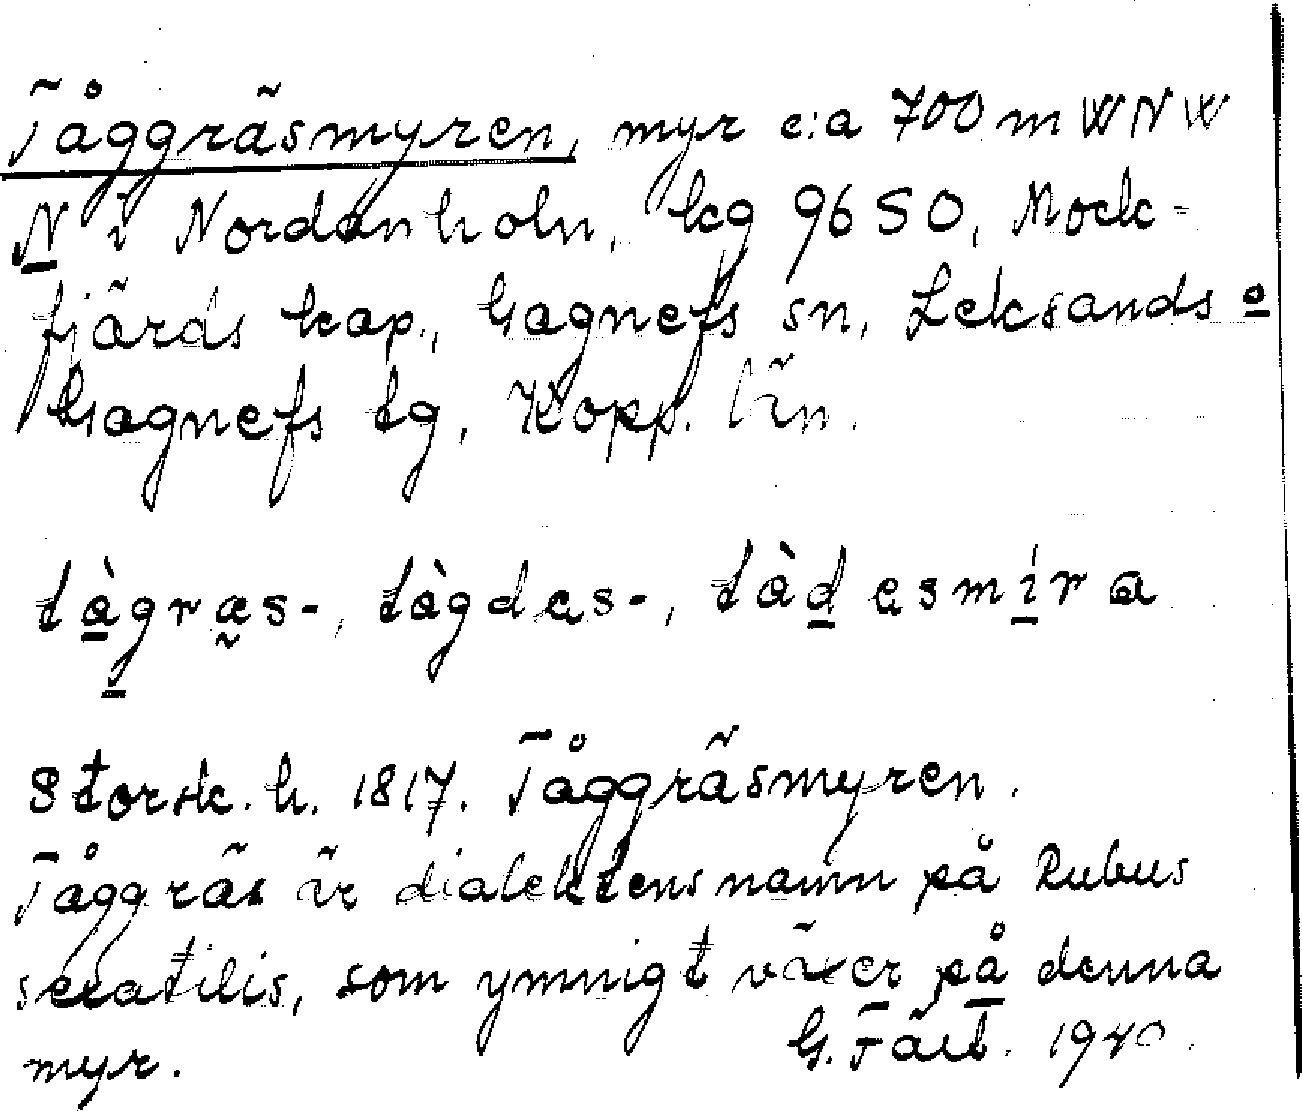 Tåggräsmyren, myr c:a 700 m WNW
N i Nordanholn, kg 9650, Mock-
fjärds kap., Gagnefs sn, Leksands o
Gagnefs tg, Kopp. län.
tàgræs-, tàgdes-, tàdesmíra
Storsk. h. 1817. Tåggräsmyren.
Tåggräs är dialektens namn på Rubus
sexatilis, som ymnigt växer på denna
myr. G. 1940.